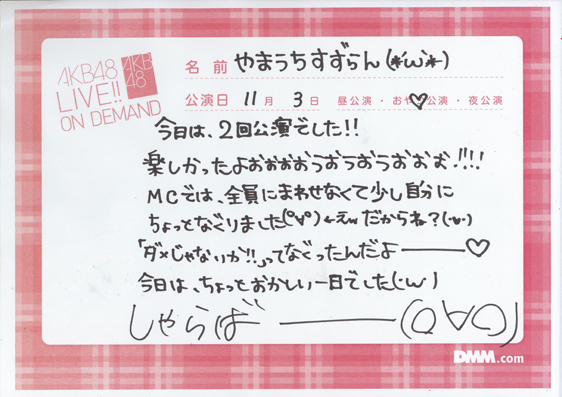 AKB48
LIVE!!
ON DEMAND
AKB
48
名前 やまうちすずらん(*´ω`*)
公演日 11月 3日 昼公演・おやつ公演・夜公演
今日は、2回公演でした!!
楽しかったよおおおおうおうおうおおお!!!!
MCでは、全員にまわせなくて少し自分に
ちょっとなぐりました(°∀°)←えw だからね?(・ω・)
「ダメじゃないか!!」ってなぐったんだよー♡
今日は、ちょっとおかしい一日でした(・ω・)
しゃらばー(O∀O)
DMM.com